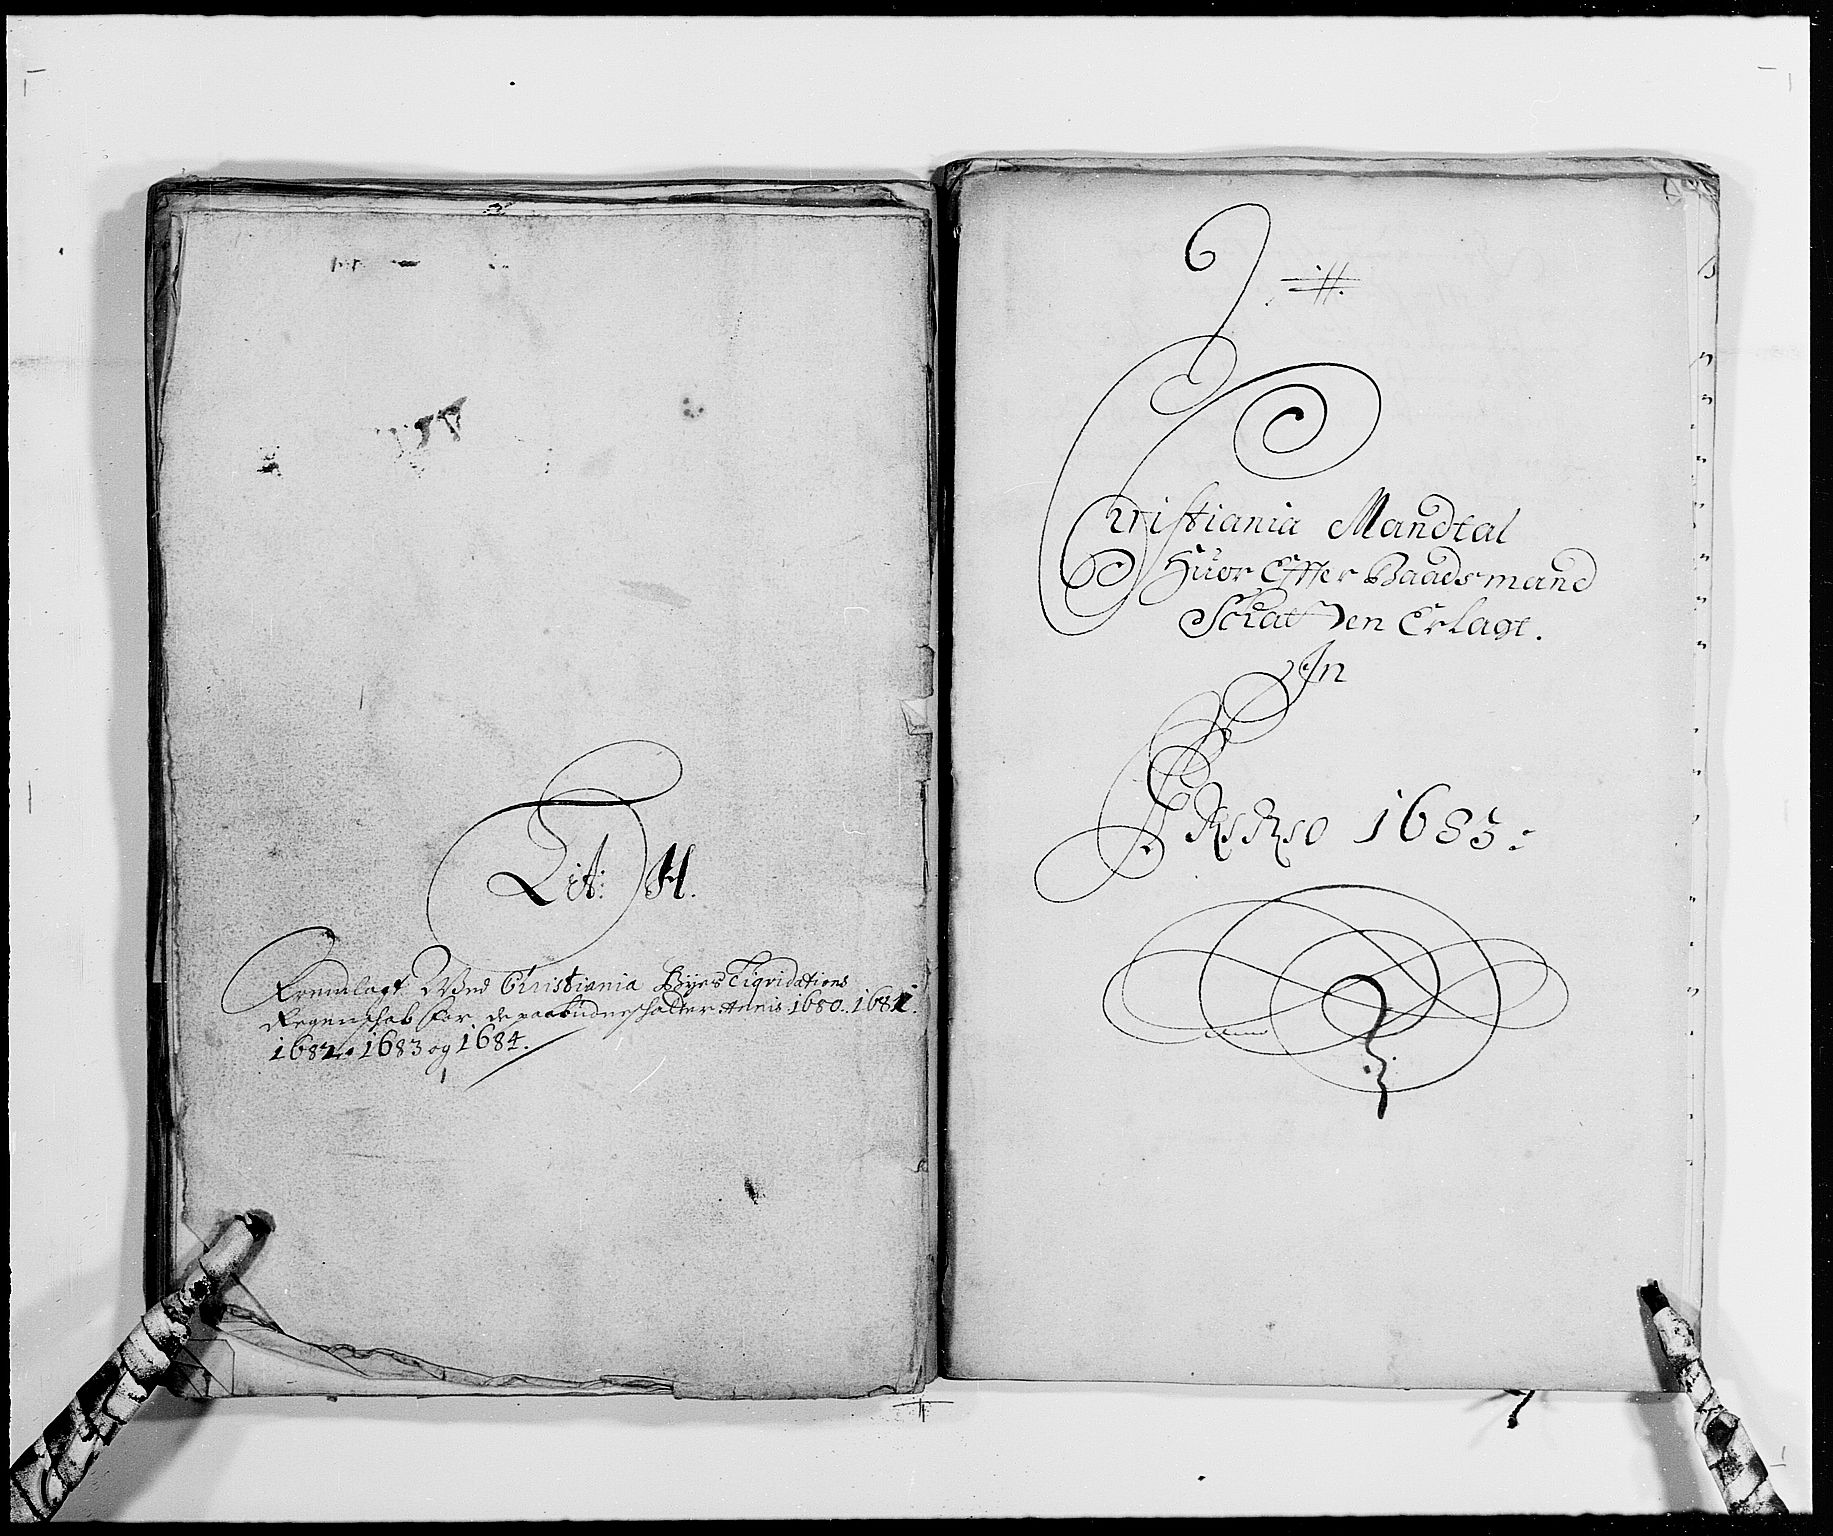 Lit: H.
Fremlagt Ved Christiania Byes Liqvidations
Regenschab for de paabudne schatter Annis 1680. 1681.
1682. 1683 og 1684.
Christiania Mandtal
Huor Effter Baadsmand
Schatten Erlagt.
In
Anno 1683: